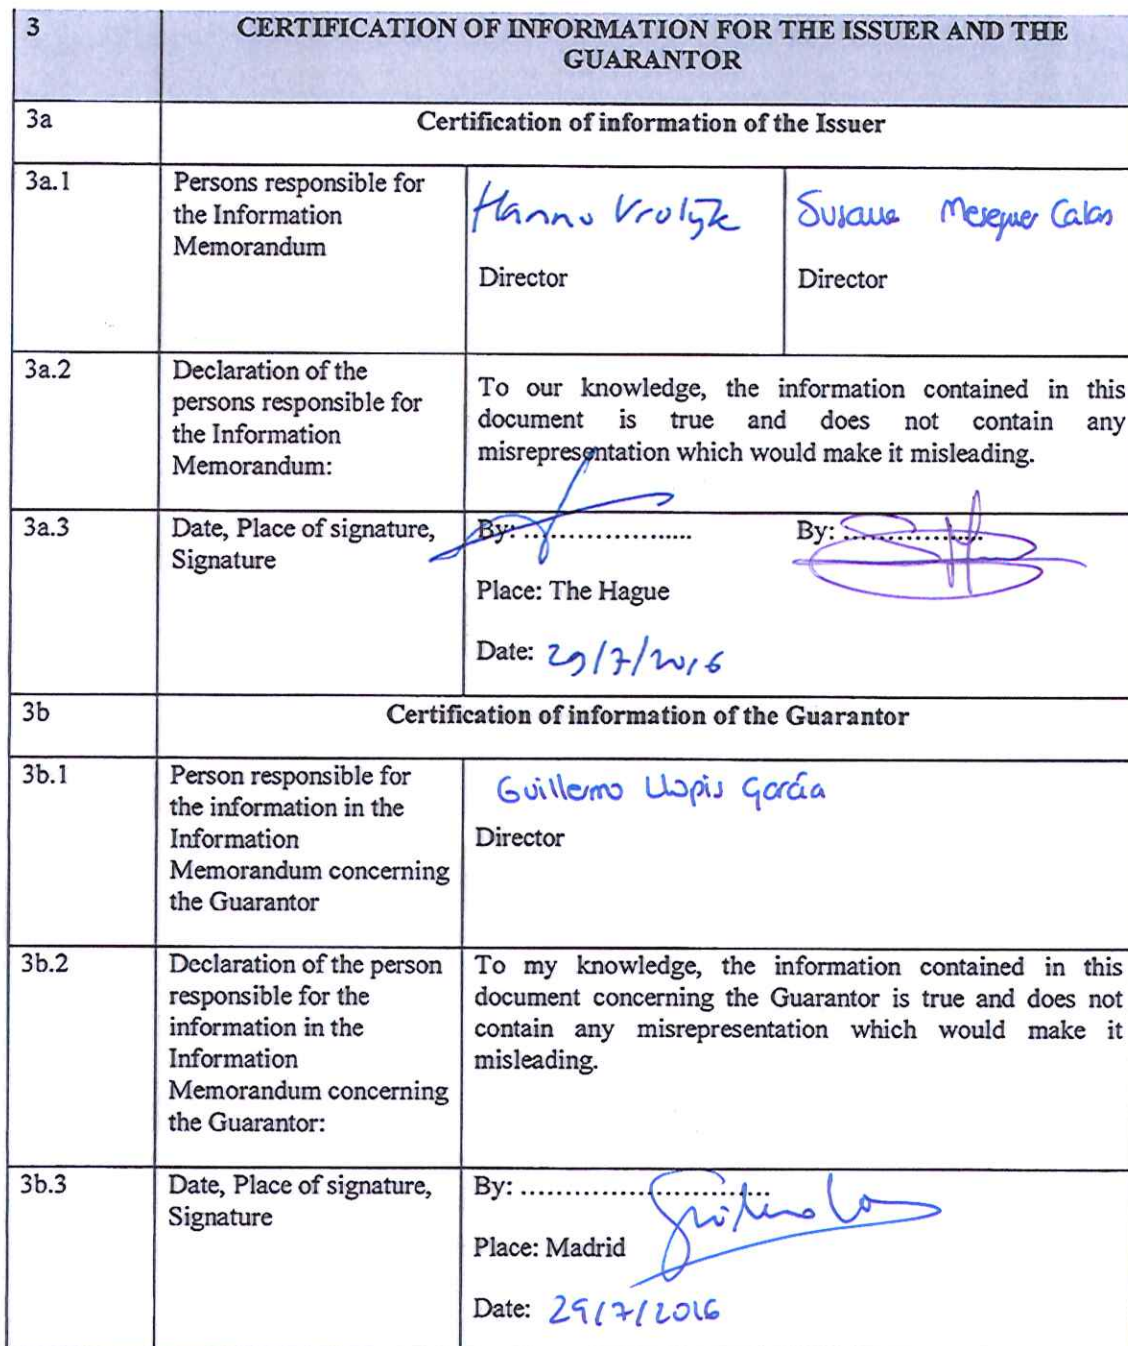 3
CERTIFICATION OF INFORMATION FOR THE ISSUER AND THE
GUARANTOR
3a
Certification of information of the Issuer
3a.1
Persons responsible for
the Information
Memorandum
Hanno Vrolijk
Director
Susana Meseguer Calas
Director
3a.2
Declaration of the
persons responsible for
the Information
Memorandum:
To our knowledge, the information contained in this
document is true and does not contain any
misrepresentation which would make it misleading.
3a.3
Date, Place of signature,
Signature
By: ...................
By: ................
Place: The Hague
Date: 29/7/2016
3b
Certification of information of the Guarantor
3b.1
Person responsible for
the information in the
Information
Memorandum concerning
the Guarantor
Guillermo Llopis García
Director
3b.2
Declaration of the person
responsible for the
information in the
Information
Memorandum concerning
the Guarantor:
To my knowledge, the information contained in this
document concerning the Guarantor is true and does not
contain any misrepresentation which would make it
misleading.
3b.3
Date, Place of signature,
Signature
By: ............................
Place: Madrid
Date: 29/7/2016